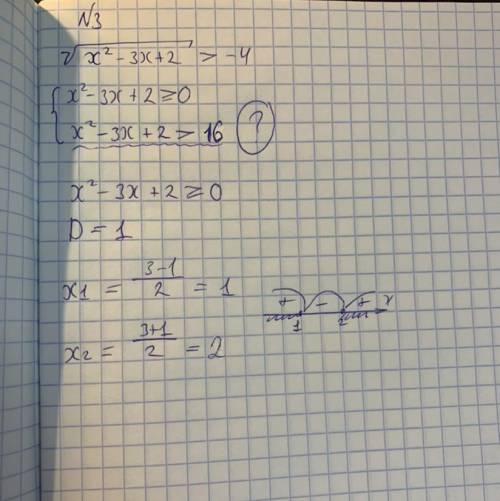 N3
√x² - 3x + 2 > -4
{ x² - 3x + 2 ≥ 0
x² - 3x + 2 > 16 ?
x² - 3x + 2 ≥ 0
D = 1
x1 = 3-1/2 = 1
+ - + x
1 2
x2 = 3+1/2 = 2